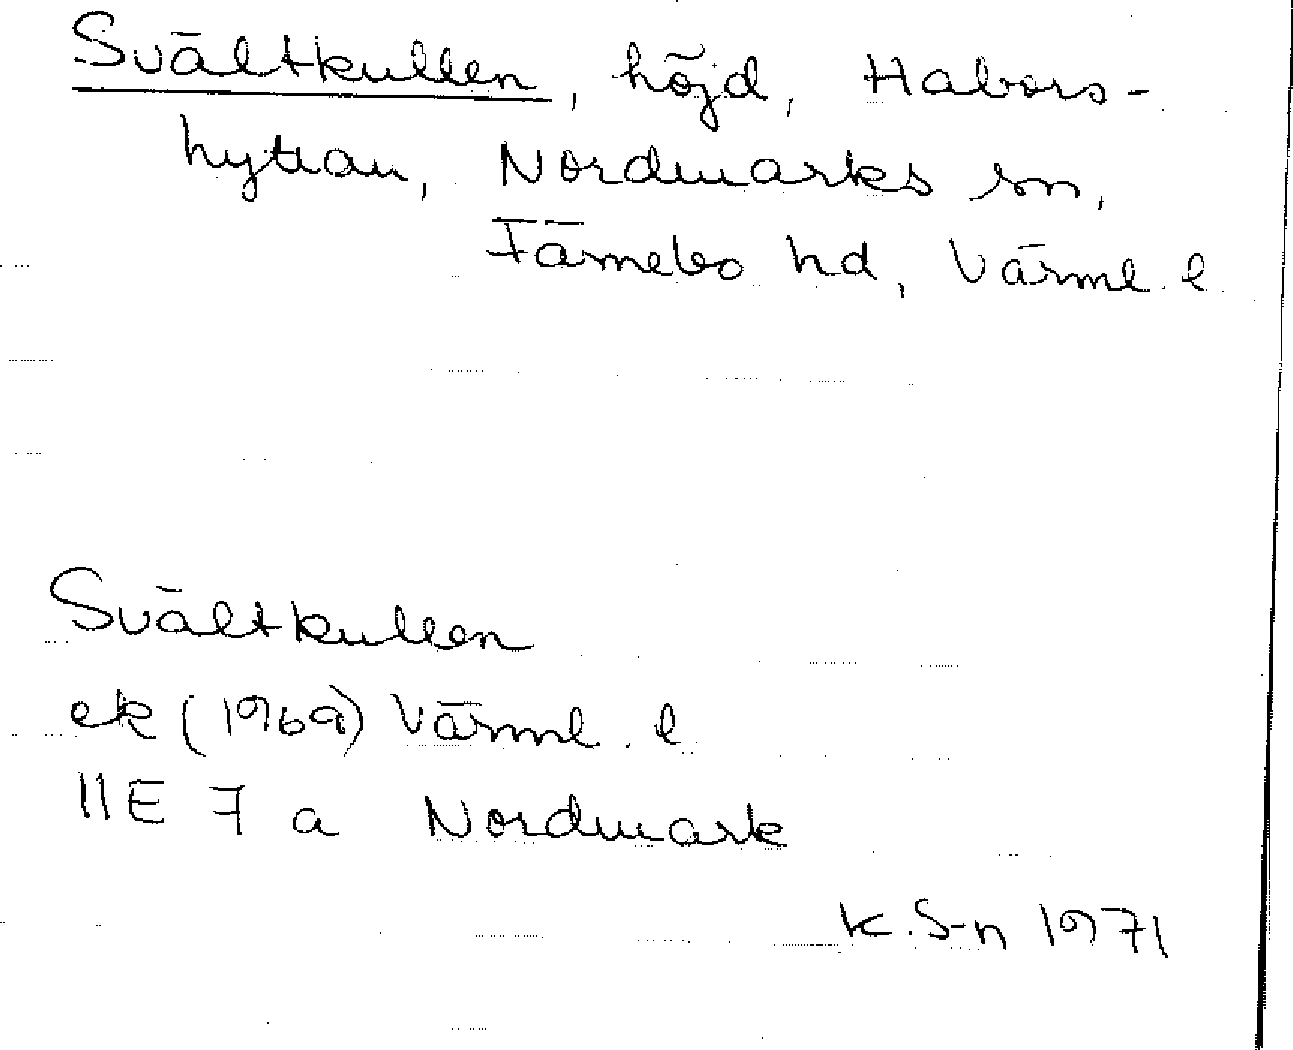 Svältkullen, höjd, Habors-
hyttan, Nordmarks sn,
Färnebo hd, Värml. l
Svältkullen
ek (1969) Värml. l
11E 7 a Nordmark
K. S-n 1971